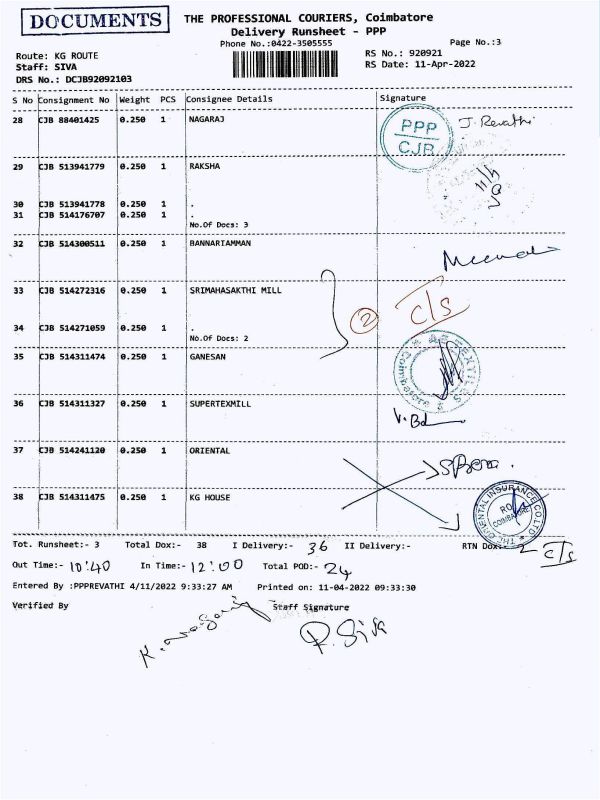 DOCUMENTS
THE PROFESSIONAL COURIERS, Coimbatore
Delivery Runsheet - PPP
Phone No.:0422-3505555
Page No.:3
Route: KG ROUTE
RS No.: 920921
Staff: SIVA
RS Date: 11-Apr-2022
DRS No.: DCJB92092103
S No Consignment No Weight PCS Consignee Details Signature
28 CJB 88401425 0.250 1 NAGARAJ
PPP
CJB
J. Revathi
29 CJB 513941779 0.250 1 RAKSHA
30 CJB 513941778 0.250 1 .
31 CJB 514176707 0.250 1 .
No.Of Docs: 3
32 CJB 514300511 0.250 1 BANNARIAMMAN
33 CJB 514272316 0.250 1 SRIMAHASAKTHI MILL
2 c/s
34 CJB 514271059 0.250 1 .
No.Of Docs: 2
35 CJB 514311474 0.250 1 GANESAN
36 CJB 514311327 0.250 1 SUPERTEXMILL
37 CJB 514241120 0.250 1 ORIENTAL
38 CJB 514311475 0.250 1 KG HOUSE
THE ORIENTAL INSURANCE CO LTD
RO
COIMBATORE
Tot. Runsheet:- 3 Total Dox:- 38 I Delivery:- 36 II Delivery:- RTN Dox:- 2 c/s
Out Time:- 10:40 In Time:- 12:00 Total POD:- 24
Entered By :PPPREVATHI 4/11/2022 9:33:27 AM Printed on: 11-04-2022 09:33:30
Verified By Staff Signature
P. Siva